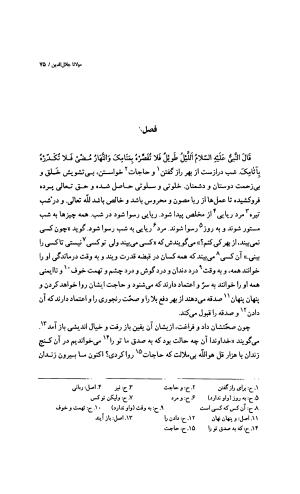 مولانا جلال‌الدین / ۷۵
فصل
قَالَ النَّبیُّ عَلَیْهِ السَّلامُ اَللَّیْلُ طَوِیْلٌ فَلا تُقَصِّرْهُ بِمَنامِکَ وَالنَّهارُ مُضیْئٌ فَلا تُکَدِّرْهُ
بِآثامِکَ. شب درازست از بهر راز گفتن۱ و حاجات۲ خواستن، بی‌تشویش خلق و
بی‌زحمت دوستان و دشمنان. خلوتی و سلوتی حاصل شده و حق تعالی پرده
فروکشیده تا عمل‌ها از ریا مصون و محروس باشد و خالص باشد لله تعالی. و در شب
تیره۳ مرد ریایی۴ از مخلص پیدا شود. ریایی رسوا شود در شب. همه چیزها به شب
مستور شوند و به روز۵ رسوا شوند. مرد۶ ریایی به شب رسوا شود. گوید «چون کسی
نمی‌بیند، از بهر کی کنم؟» می‌گویندش که «کسی می‌بیند ولی تو کسی۷ نیستی تا کسی را
بینی.» آن کسی۸ می‌بیند که همه کسان در قبضه قدرت ویند و به وقت درماندگی او را
خوانند همه، و به وقت۹ درد دندان و درد گوش و درد چشم و تهمت خوف۱۰ و ناایمنی
همه او را خوانند به سرّ و اعتماد دارند که می‌شنود و حاجت ایشان روا خواهد کردن و
پنهان پنهان۱۱ صدقه می‌دهند از بهر دفع بلا را و صحّت رنجوری را و اعتماد دارند که آن
دادن۱۲ و صدقه را قبول می‌کند.
چون صحّتشان داد و فراغت، ازیشان آن یقین باز رفت و خیال اندیشی باز آمد.۱۳
می‌گویند «خداوندا آن چه حالت بود که به صدق ما تو را۱۴ می‌خواندیم در آن کنج
زندان با هزار قل هوالله بی‌ملالت که حاجات۱۵ روا کردی؟ اکنون ما بیرون زندان
۱. ح: برای راز گفتن ۲. ح: و حاجت ۳. ح: نیز ۴. اصل: ربانی
۵. ح: به روز (واو ندارد) ۶. ح: و مرد ۷. ح: ولیکن تو کس
۸. ح: آن کس که کسی است ۹. ح: به وقت (واو ندارد) ۱۰. ح: تهمت و خوف
۱۱. اصل: و پنهان نهان ۱۲. ح: دادن را ۱۳. اصل: باز آیند
۱۴. ح: که به صدق تو را ۱۵. ح: حاجت